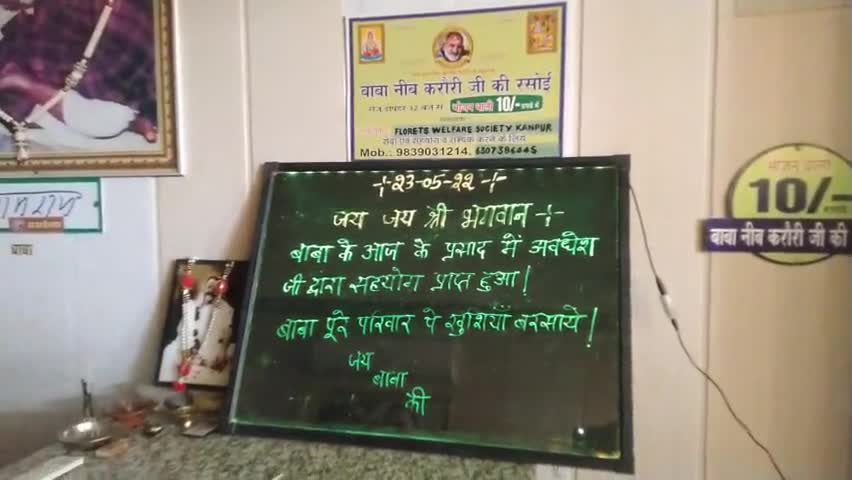 बाबा नीब करौरी जी की रसोई
रोज दोपहर 12 बजे से भोजन थाली 10/- रुपये में
FLORETS WELFARE SOCIETY KANPUR
सेवा एवं सहयोग व सम्पर्क करने के लिये
Mob.: 9839031214, 6307386045
-:-23-05-22-:-
जय जय श्री भगवान -:-
बाबा के आज के प्रसाद में अवधेश
जी द्वारा सहयोग प्राप्त हुआ!
बाबा पूरे परिवार पे खुशियाँ बरसाये!
जय
बाबा
की
भोजन थाली
10/-
बाबा नीब करौरी जी की
बाबा